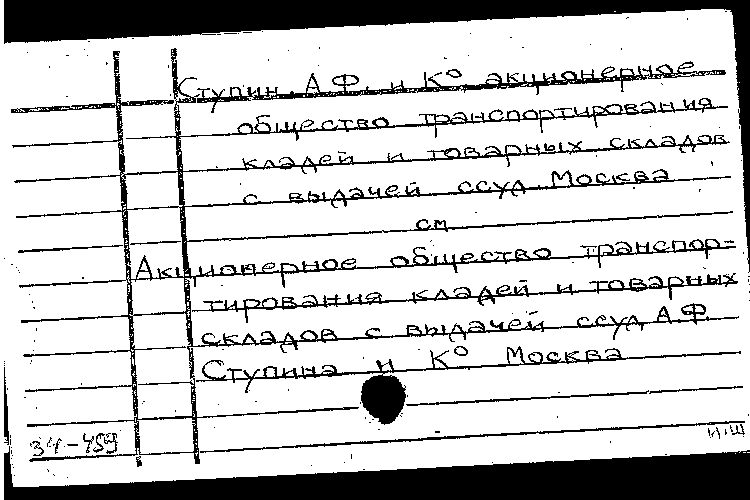 Ступин А.Ф. и К° акционерное
общество транспортирования
кладей и товарных складов
с выдачей ссуд. Москва
см
Акционерное общество транспор=
тирования кладей и товарных
складов с выдачей ссуд А.Ф.
Ступина и К° Москва
34-459